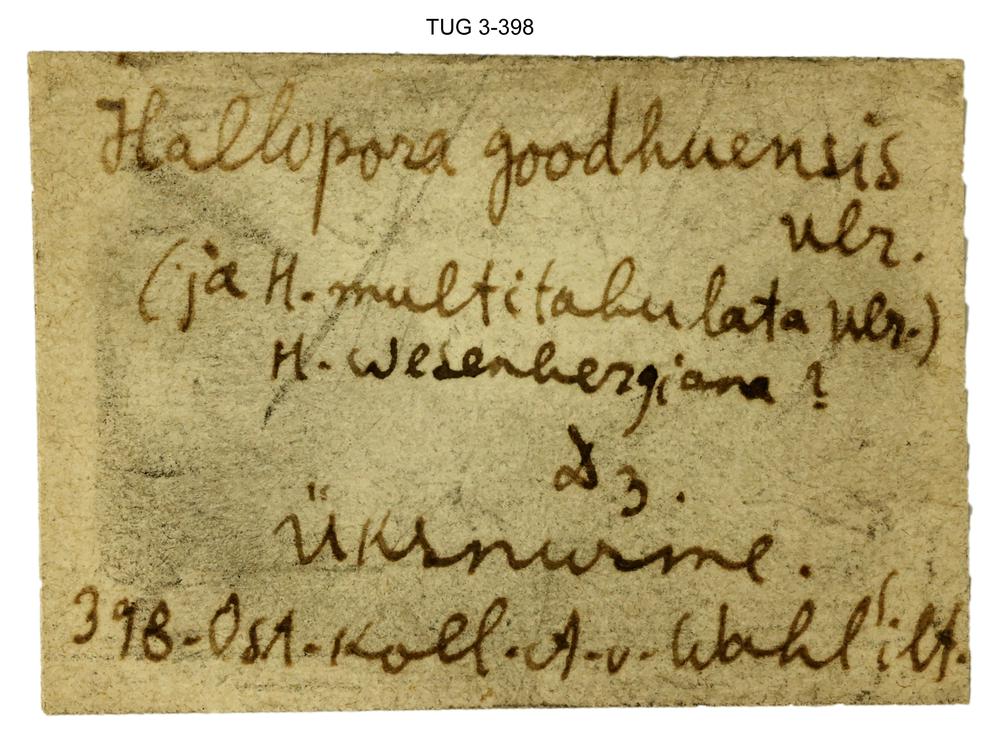 TUG 3-398
Hallopora goodhuensis
Ulr.
(ja H. multitabulata Ulr.)
H. Wesenbergiana ?
D3.
Üksnurme.
398-Ost. koll. A. v. Wahl'ilt.